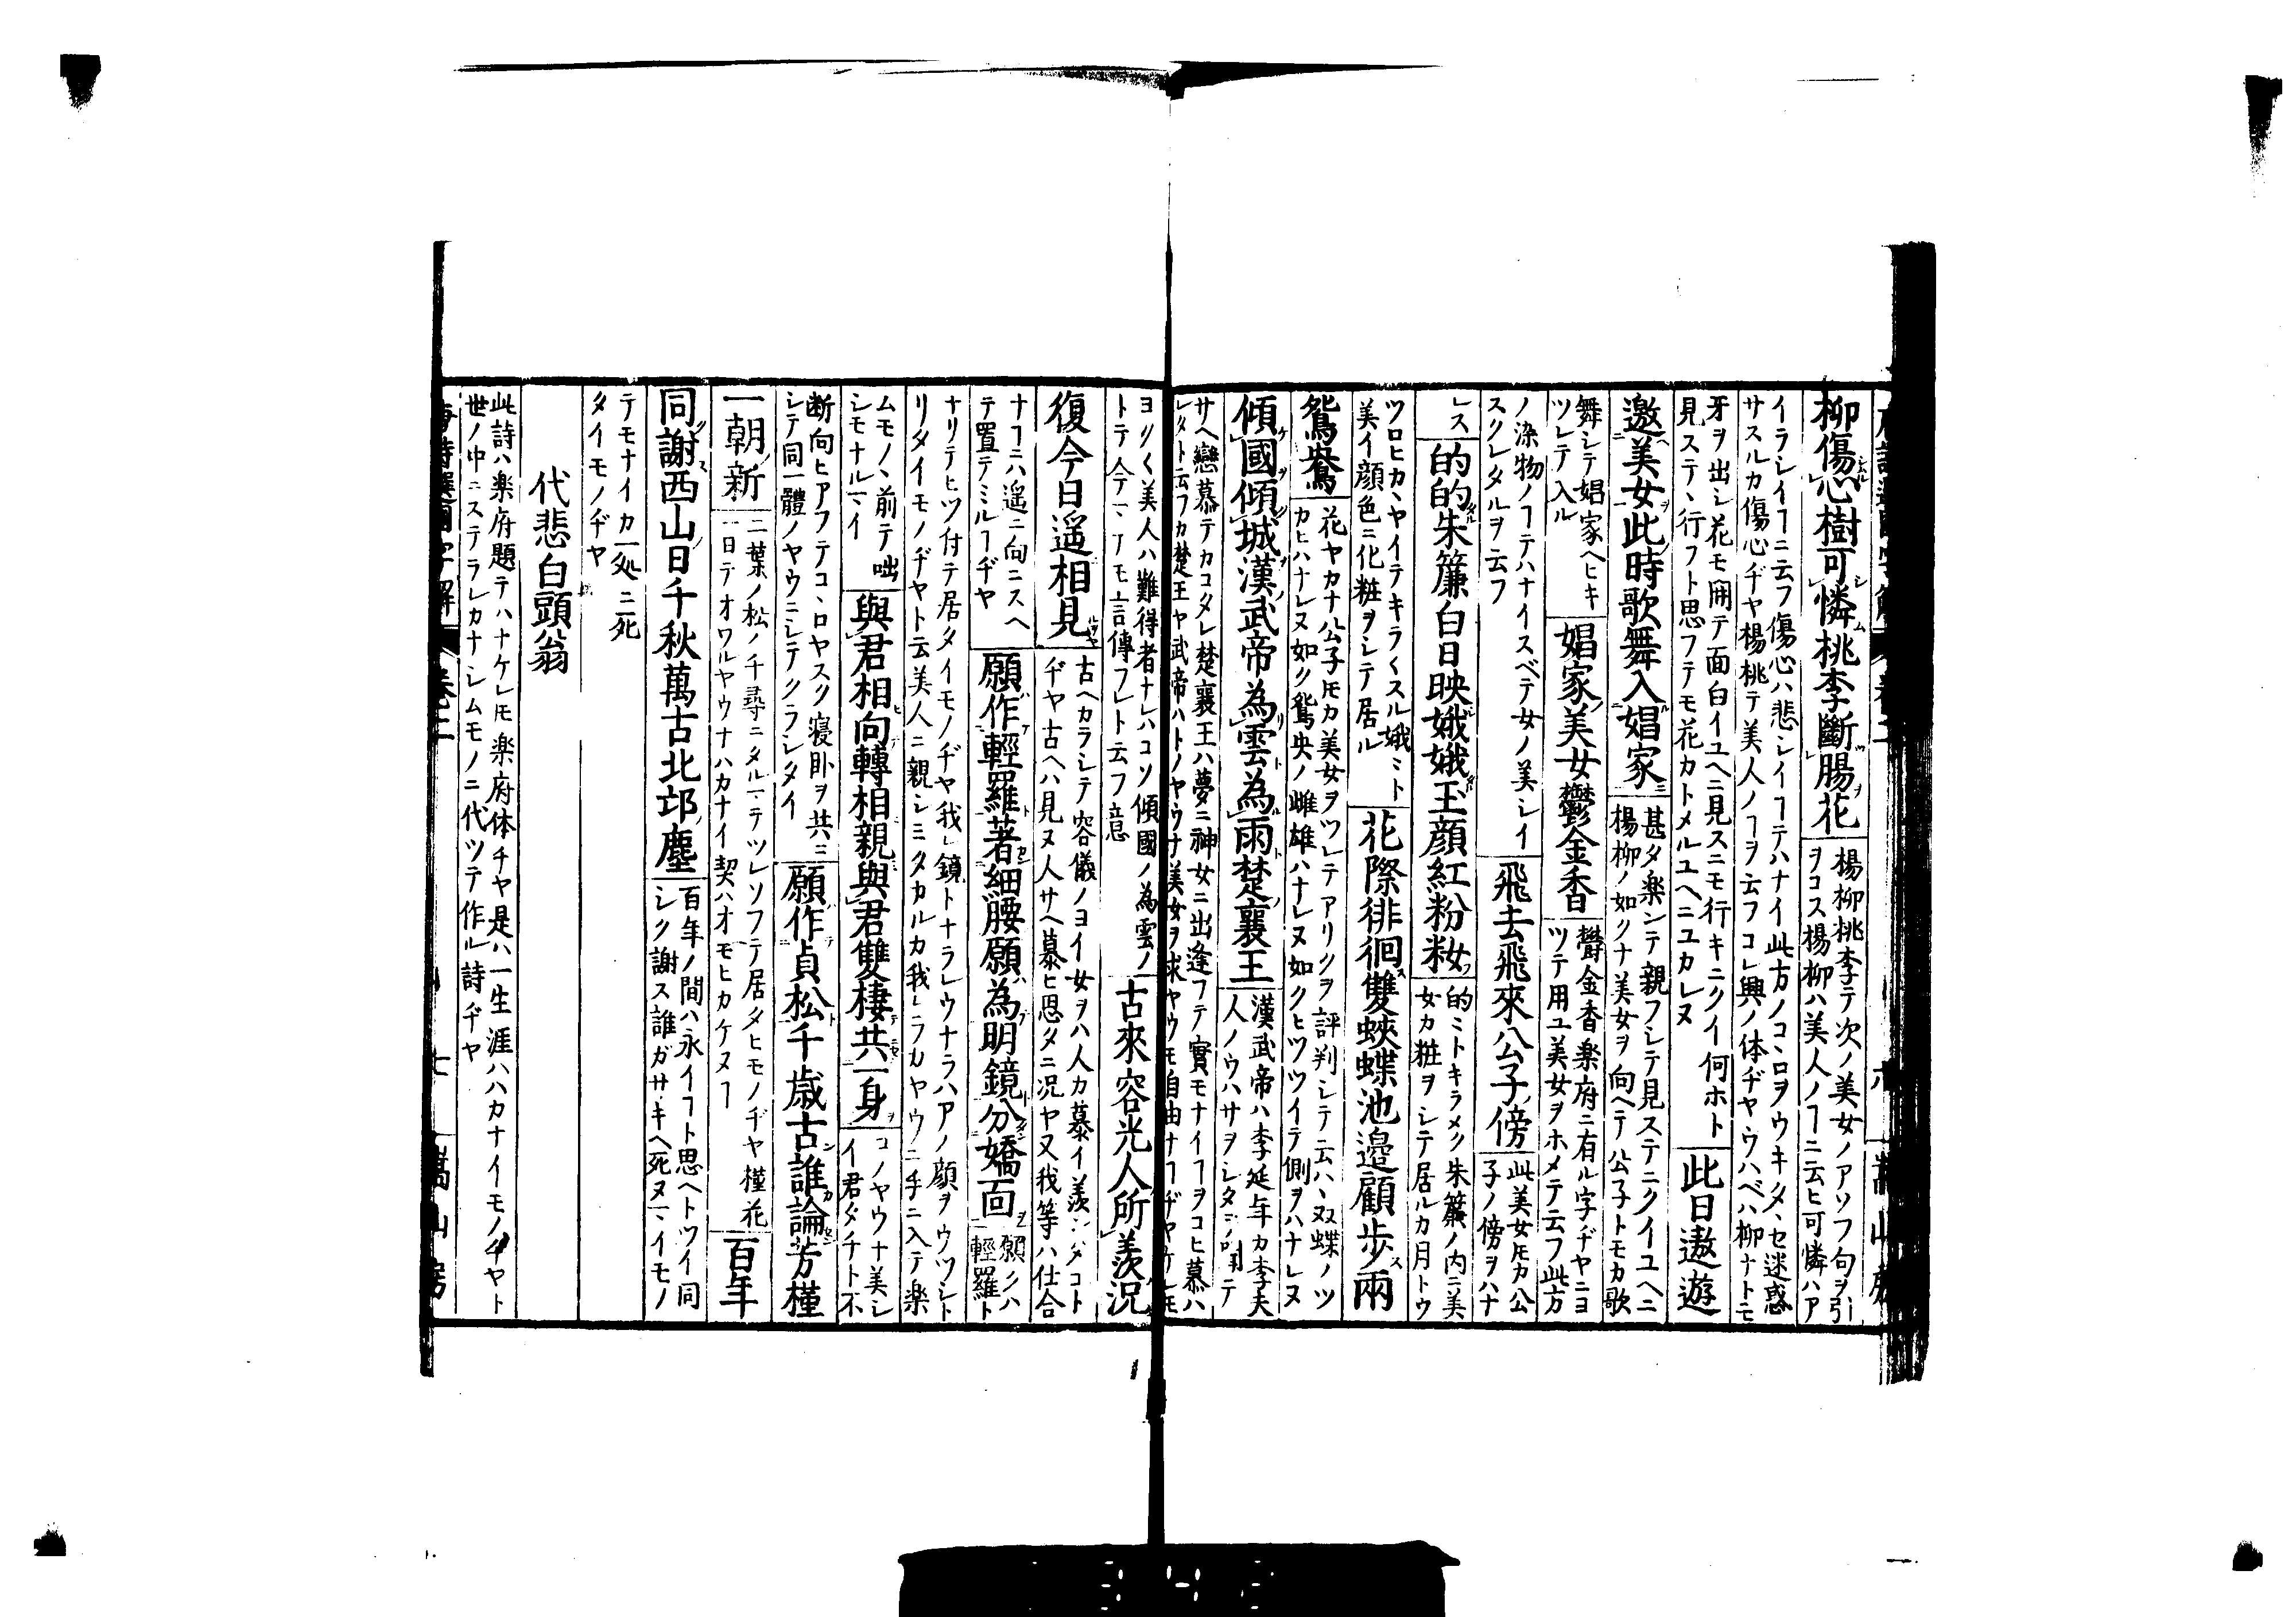 柳傷心樹可憐桃李斷腸花
楊柳桃李テ次ノ美女ノアソフ句ヲ引
ヲコス楊柳ハ美人ノヿニ云ヒ可憐ハア
イラシイヿニ云フ傷心ハ悲シイヿテハナイ此方ノコヽロヲウキタヽセ迷惑
サスルカ傷心ヂヤ楊桃テ美人ノヿヲ云フコレ興ノ体ヂヤウハベハ柳ナトモ
牙ヲ出シ花モ開テ面白イユヘニ見スニモ行キニクイ何ホト
見ステヽ行フト思フテモ花カトメルユヘニユカレヌ
此日遨遊
邀美女此時歌舞入娼家
甚タ楽ンテ親フシテ見ステニクイユヘニ
楊柳ノ如クナ美女ヲ向ヘテ公子トモカ歌
舞シテ娼家ヘヒキ
ツレテ入ル
娼家美女鬱金香
欝金香楽府ニ有ル字ヂヤニヨ
ツテ用ユ美女ヲホメテ云フ此方
ノ染物ノヿテハナイスベテ女ノ美シイ
スクレタルヲ云フ
飛去飛來公子傍
此美女𪜈カ公
子ノ傍ヲハナ
レス
的的朱簾白日映娥娥玉顔紅粉粧
的ミトキラメク朱簾ノ内ニ美
女カ粧ヲシテ居ルカ月トウ
ツロヒカヽヤイテキラ〱スル娥ミト
美イ顔色ニ化粧ヲシテ居ル
花際徘徊雙蛺蝶池邉顧歩兩
鴛鴦
花ヤカナ公子𪜈カ美女ヲツレテアリクヲ評判シテ云ハヽ双蝶ノツ
カヒハナレヌ如ク鴛央ノ雌雄ハナレヌ如クヒツツイテ側ヲハナレヌ
傾國傾城漢武帝為雲為雨楚襄王
漢武帝ハ李延年カ李夫
人ノウハサヲシタヲ聞テ
サヘ戀慕テカコタレ楚襄王ハ夢ニ神女ニ出逢フテ實モナイヿヲコヒ慕ハ
レタト云フカ楚王ヤ武帝ハトノヤウナ美女ヲ求ヤウモ自由ナヿヂヤケレ𪜈
ヨク〱美人ハ難得者ナレハコソ傾國ノ為雲ノ
トテ今ママテモ言傳フレト云フ意
古來容光人所羨況
復今日遥相見
古ヘカラシテ容儀ノヨイ女ヲハ人カ慕イ羨シタコト
ヂヤ古ヘハ見ヌ人サヘ慕ヒ思タニ况ヤ又我等ハ仕合
ナヿニハ遥ニ向ニスヘ
テ置テミルヿヂヤ
願作輕羅著細腰願為明鏡分嬌面
願クハ
輕羅ト
ナリテヒツ付テ居タイモノヂヤ我レ鏡トナラレウナラハアノ顔ヲウツシト
リタイモノヂヤト云美人ニ親シミタカルカ我レニラカヤウニ手ニ入テ楽
ムモノヽ前テ咄
シモナルマイ
與君相向轉相親與君雙棲共一身
コノヤウナ美シ
イ君ダチト不
断向ヒアフテコヽロヤスク寝卧ヲ共ニ
シテ同一體ノヤウニシテクラシタイ
願作貞松千歳古誰論芳槿
一朝新
二葉ノ松ノ千尋ニタルマテツレソフテ居タヒモノヂヤ槿花
一日テオワルヤウナハカナイ契ハオモヒカケヌヿ
百年
同謝西山日千秋萬古北邙塵
百年ノ間ハ永イヿト思ヘトツイ同
シク謝ス誰ガサキヘ死ヌマイモノ
テモナイカ一処ニ死
タイモノヂヤ
代悲白頭翁
此詩ハ楽府題テハナケレ𪜈楽府体チヤ是ハ一生涯ハハカナイモノチヤト
世ノ中ニステラレカナシムモノニ代ツテ作ル詩ヂヤ
唐詩選國字解 巻二 七 嵩山房